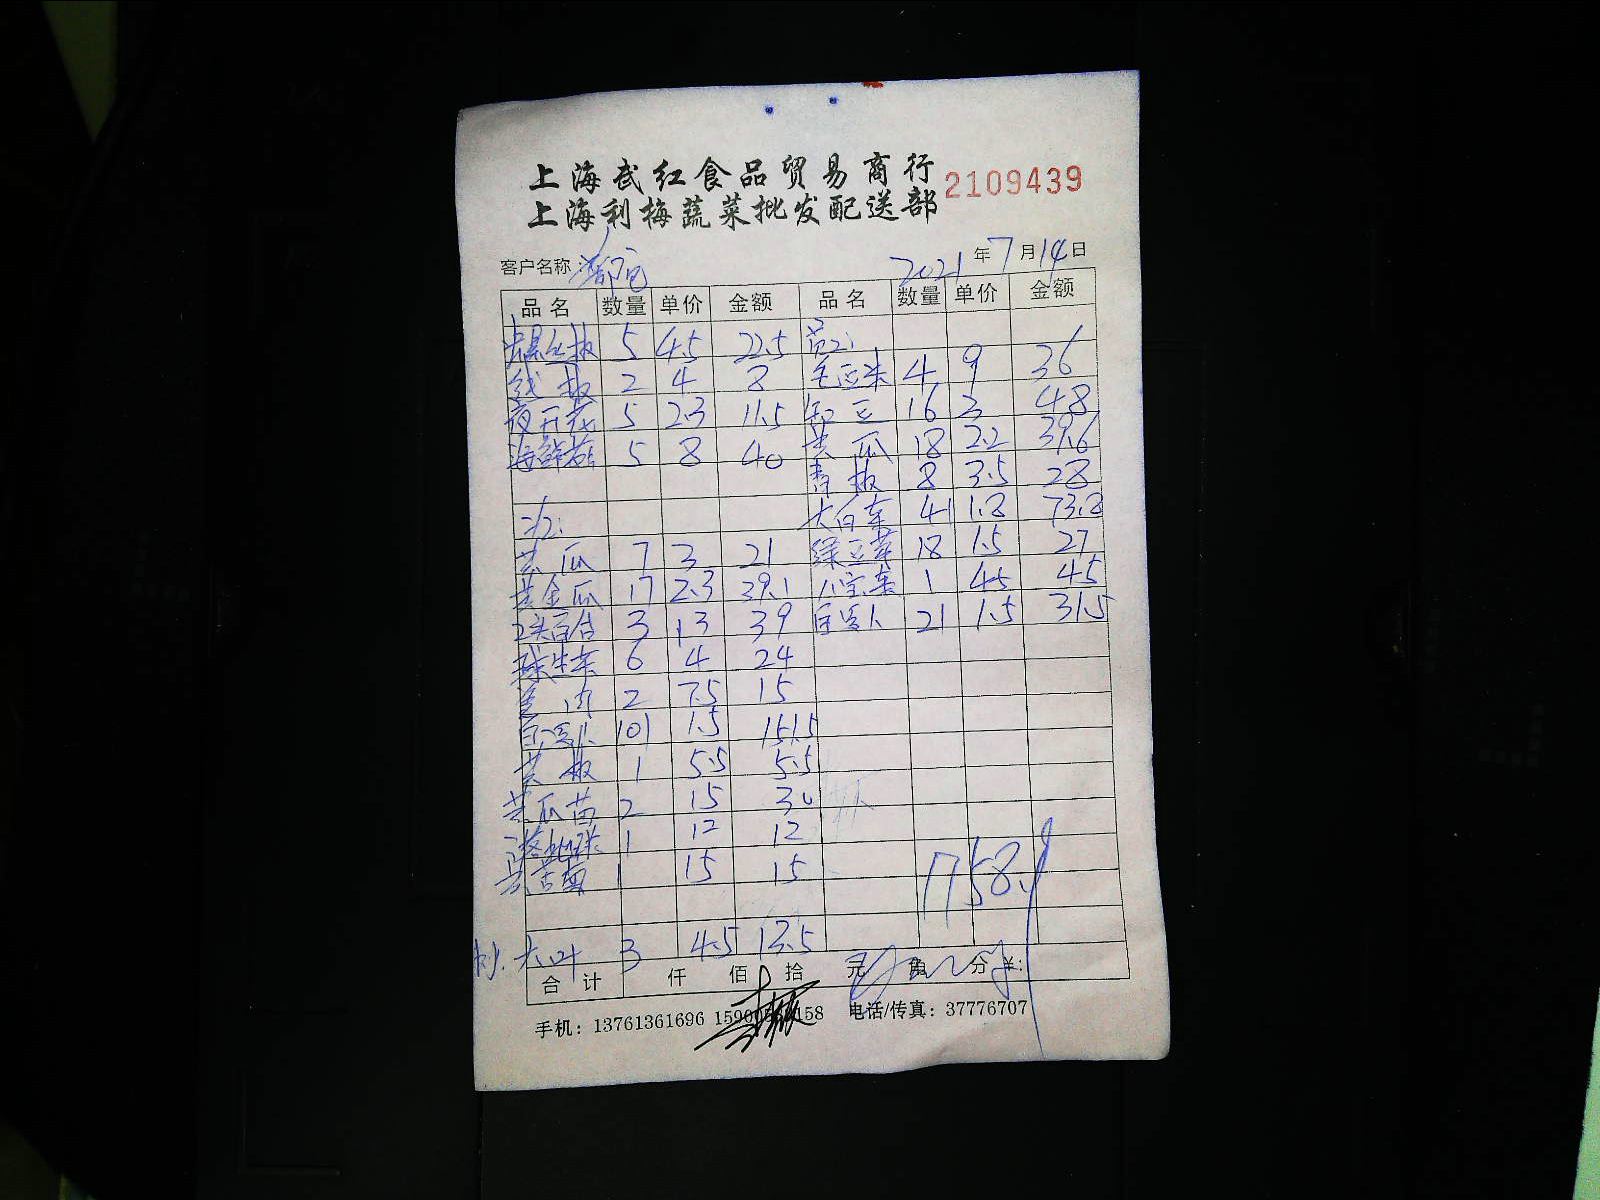 上海武红食品贸易商行
2109439
上海利梅蔬菜批发配送部
客户名称: 2021年7月14日
品名 数量 单价 金额 品名 数量 单价 金额
5 4.5 22.5
线椒 2 4 8 毛豆米 4 9 36
夜开花 5 2.3 11.5 豆 16 3 48
海鲜菇 5 8 40 黄瓜 18 2.2 39.6
青椒 8 3.5 28
大白菜 41 1.8 73.8
黄瓜 7 3 21 绿豆芽 18 1.5 27
黄金瓜 17 2.3 39.1 八宝菜 1 45 45
百合 3 13 39 21 1.5 31.5
球生菜 6 4 24
肉 2 7.5 15
101 1.5 151.5
黄椒 1 5.5 5.5
黄瓜苗 2 15 30
1 12 12
1 15 15
758.1
大叶 3 4.5 13.5
合计 仟 佰 拾 元 角 分 ¥:
手机: 13761361696 158 电话/传真: 37776707